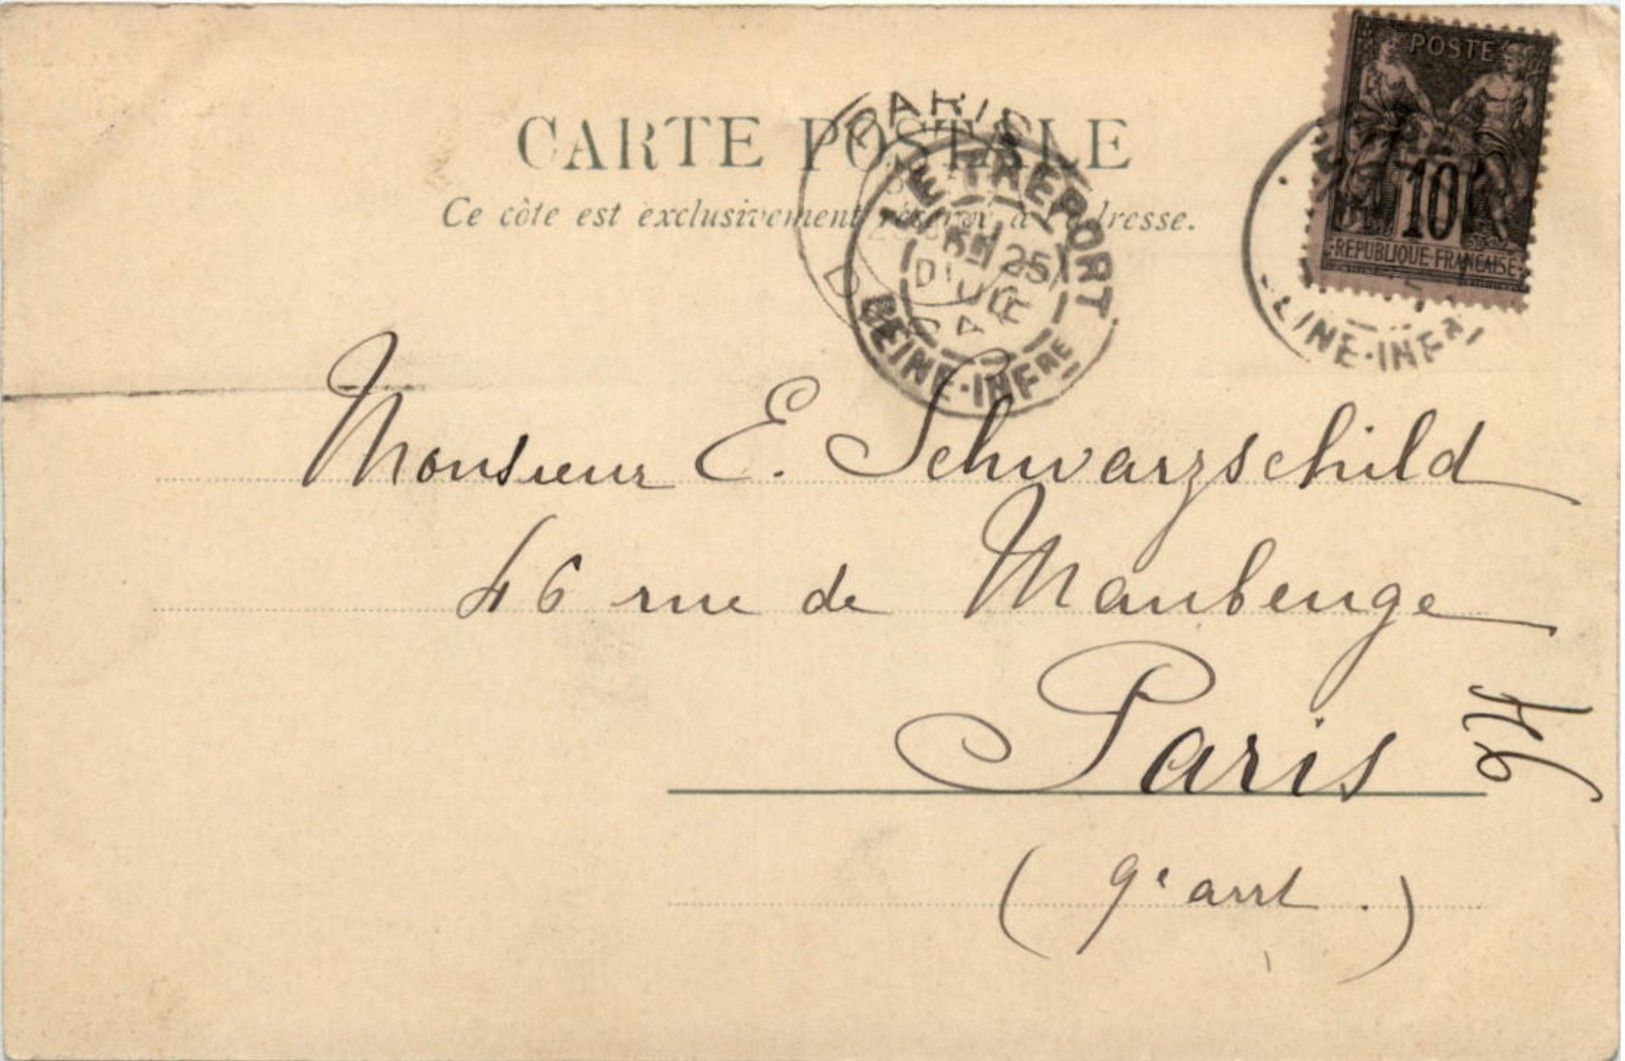 CARTE POSTALE
Ce côte est exclusivement réservé à l'adresse.
POSTE
10
REPUBLIQUE-FRANÇAISE
PARIS
LE TREPORT
25
SEINE-INFRE
EINE-INFR
Monsieur E. Schwarzschild
46 rue de Maubeuge
Paris
(9e arrt.)